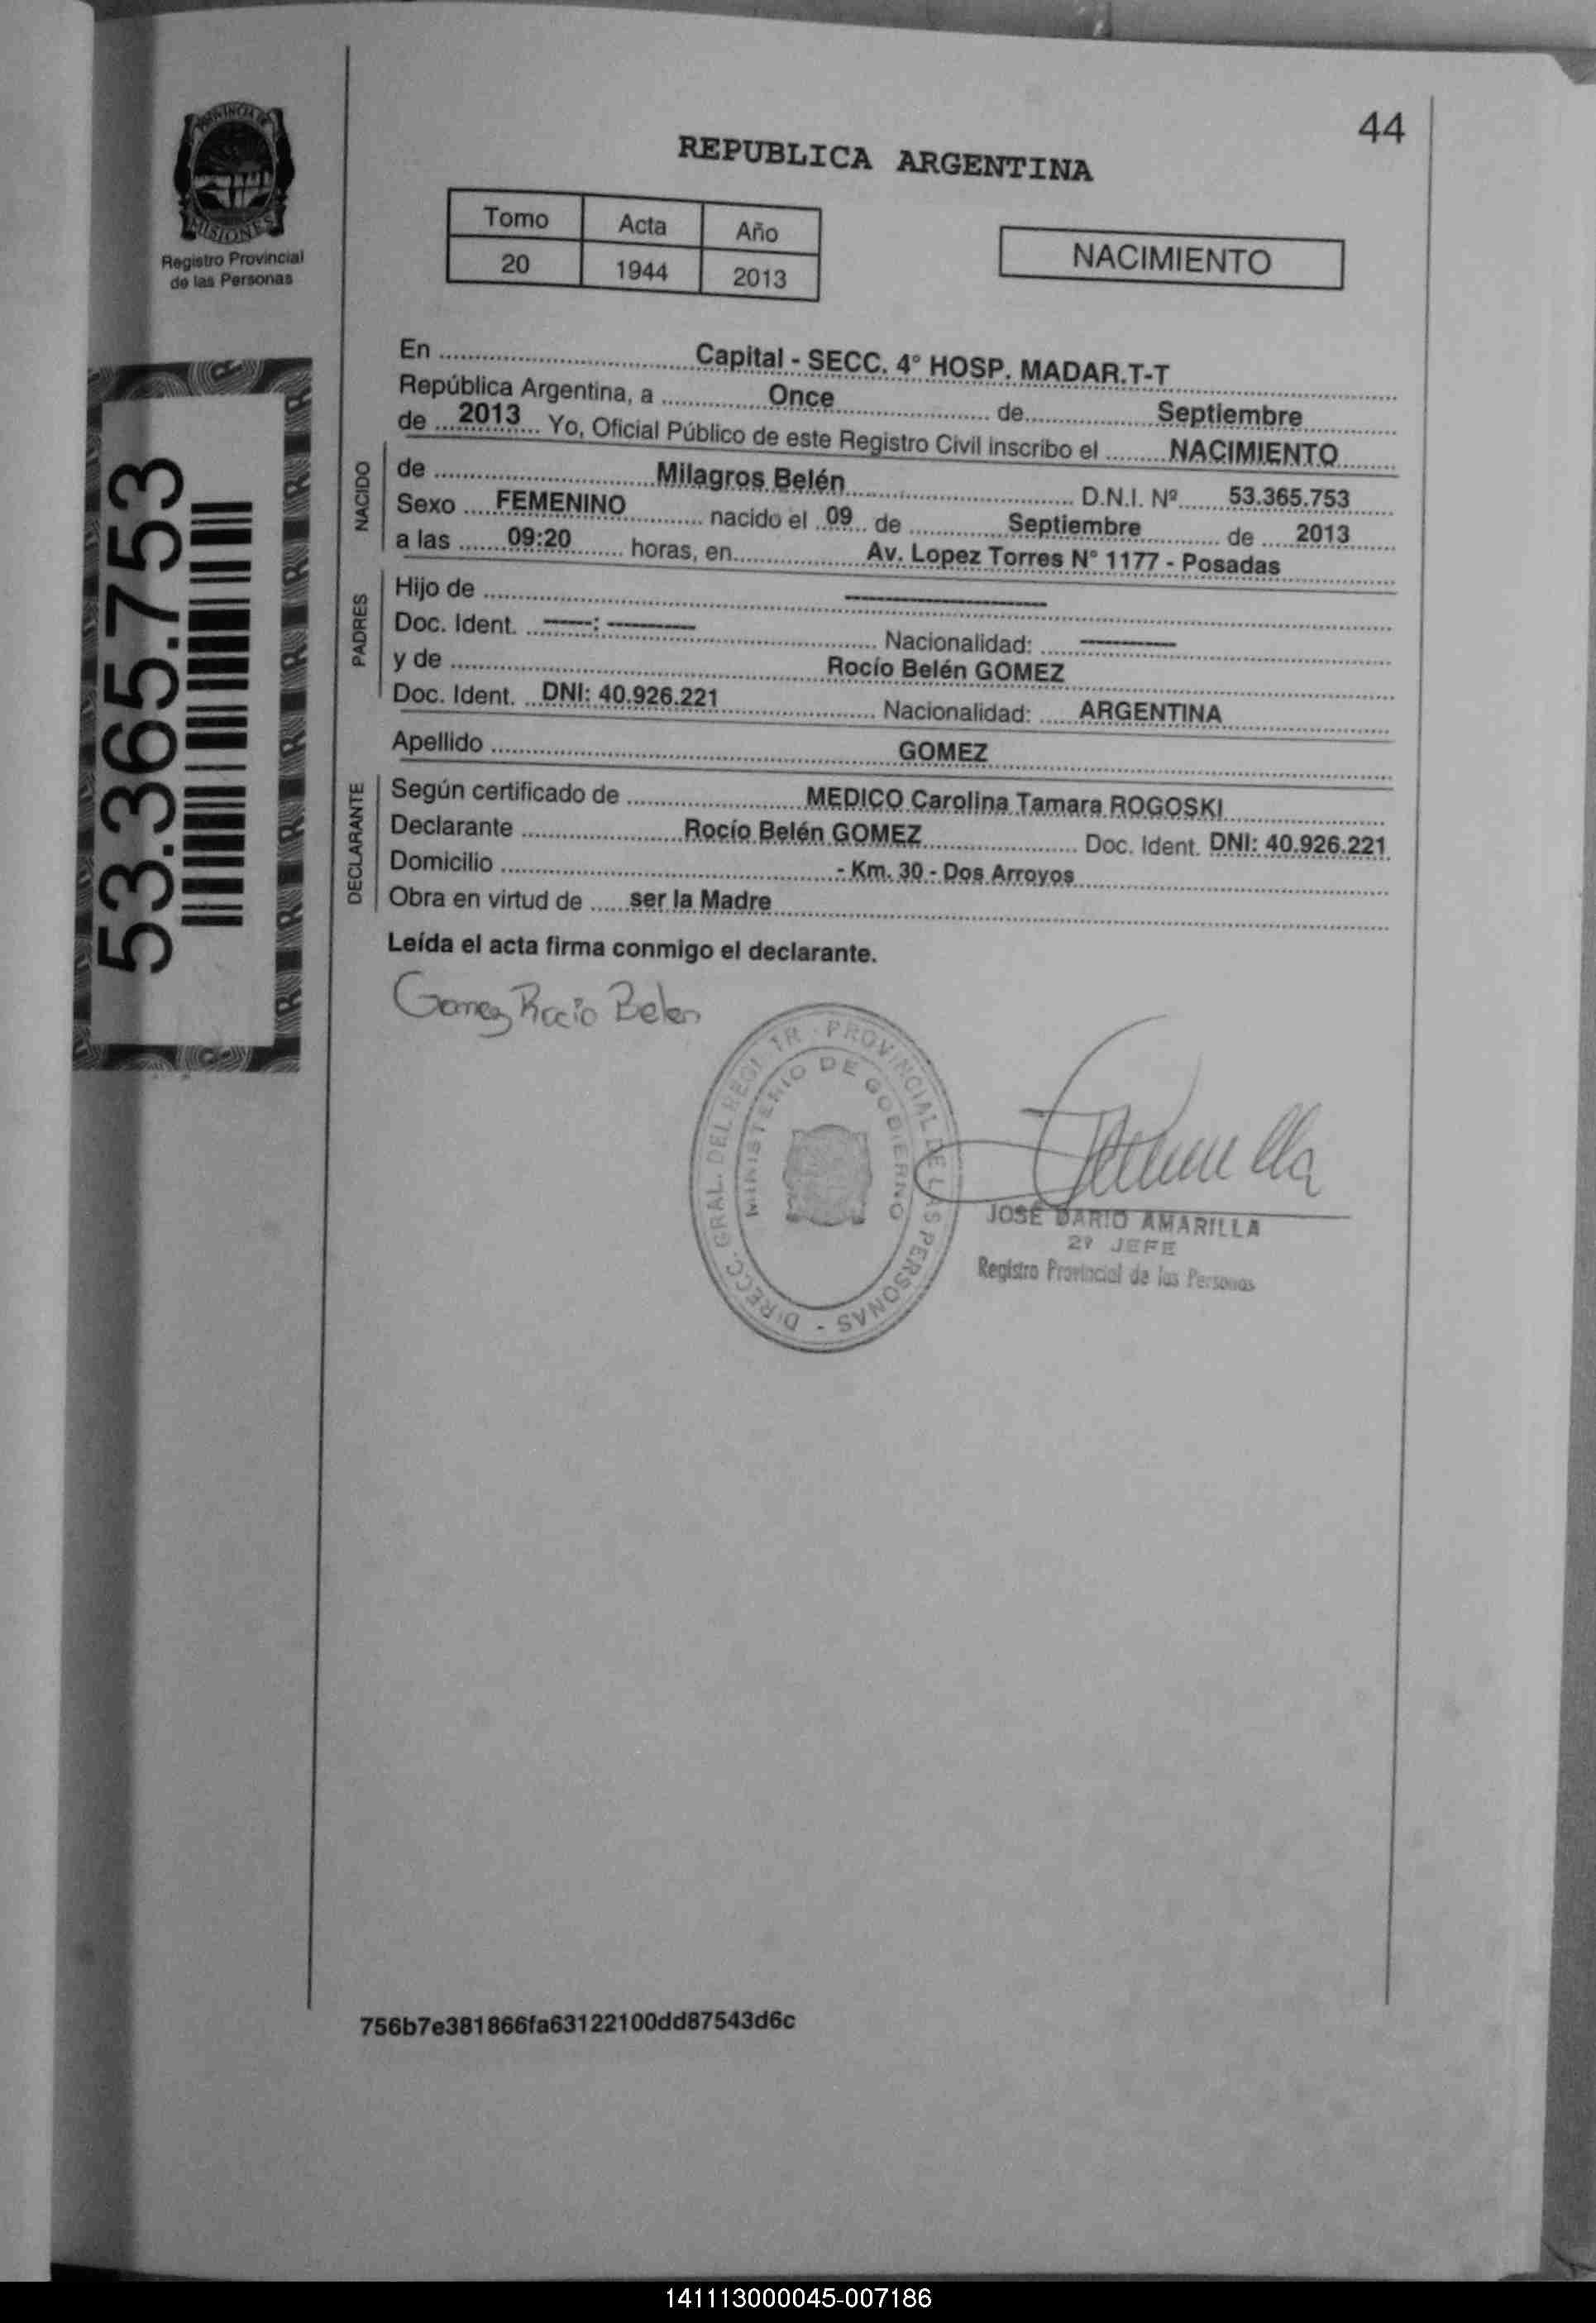 44
REPUBLICA ARGENTINA
PROVINCIA DE
MISIONES
Registro Provincial
de las Personas
Tomo Acta Año
20 1944 2013
NACIMIENTO
En Capital - SECC. 4° HOSP. MADAR.T-T
República Argentina, a Once de Septiembre
de 2013 Yo, Oficial Público de este Registro Civil inscribo el NACIMIENTO
NACIDO
de Milagros Belén D.N.I. Nº 53.365.753
Sexo FEMENINO nacido el 09 de Septiembre de 2013
a las 09:20 horas, en Av. Lopez Torres N° 1177 - Posadas
PADRES
Hijo de ----------
Doc. Ident. ----: -------- Nacionalidad: --------
y de Rocío Belén GOMEZ
Doc. Ident. DNI: 40.926.221 Nacionalidad: ARGENTINA
Apellido GOMEZ
DECLARANTE
Según certificado de MEDICO Carolina Tamara ROGOSKI
Declarante Rocío Belén GOMEZ Doc. Ident. DNI: 40.926.221
Domicilio - Km. 30 - Dos Arroyos
Obra en virtud de ser la Madre
Leída el acta firma conmigo el declarante.
Gomez Rocio Belen
53.365.753
DIRECC. GRAL. DEL REGI TR PROVINCIAL DE LAS PERSONAS -
MINISTERIO DE GOBIERNO
JOSE DARIO AMARILLA
2º JEFE
Registro Provincial de las Personas
756b7e381866fa63122100dd87543d6c
141113000045-007186